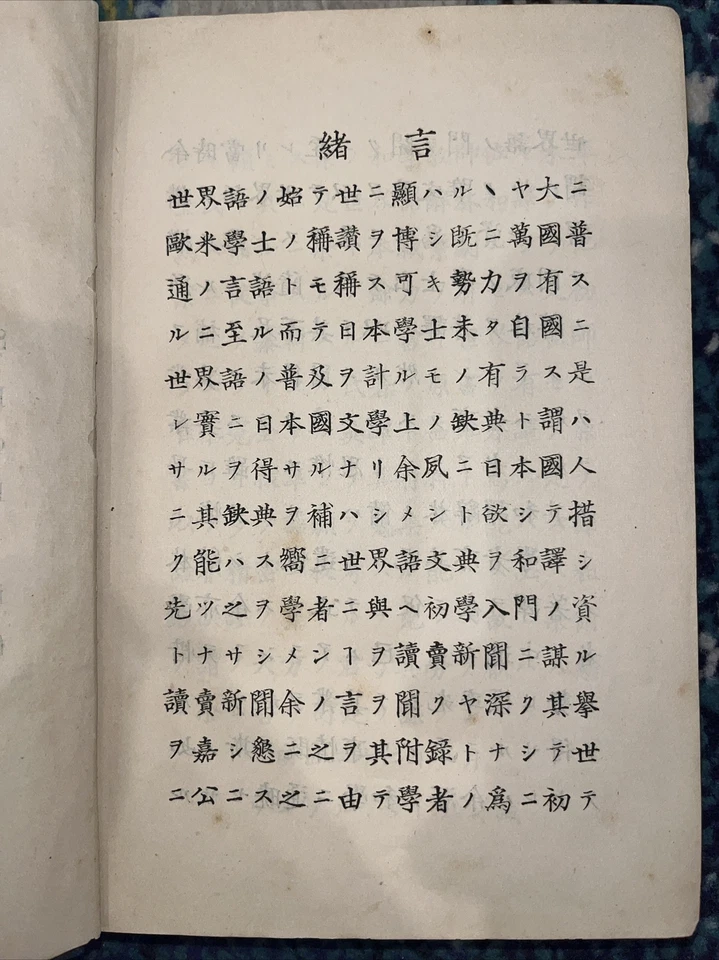 緒言
世界語ノ始テ世ニ顯ハルヽヤ大ニ
歐米學士ノ稱讃ヲ博シ既ニ萬國普
通ノ言語トモ稱ス可キ勢力ヲ有ス
ルニ至ル而テ日本學士未タ自國ニ
世界語ノ普及ヲ計ルモノ有ラス是
レ實ニ日本國文學上ノ缺典ト謂ハ
サルヲ得サルナリ余夙ニ日本國人
ニ其缺典ヲ補ハシメント欲シテ措
ク能ハス嚮ニ世界語文典ヲ和譯シ
先ツ之ヲ學者ニ與ヘ初學入門ノ資
トナサシメンヿヲ讀賣新聞ニ謀ル
讀賣新聞余ノ言ヲ聞クヤ深ク其擧
ヲ嘉シ懇ニ之ヲ其附録トナシテ世
ニ公ニス之ニ由テ學者ノ爲ニ初テ